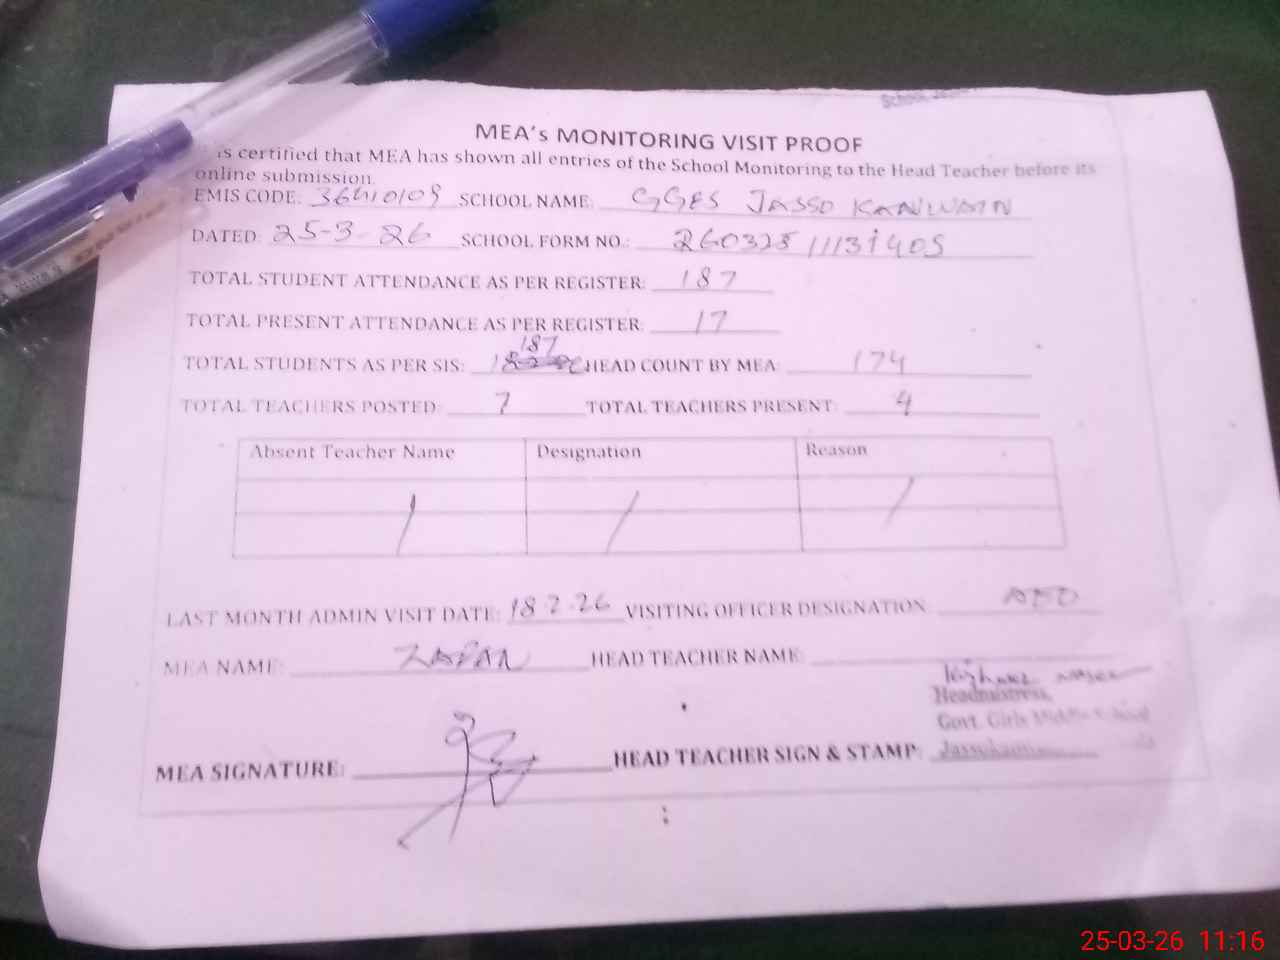 MEA's MONITORING VISIT PROOF
is certified that MEA has shown all entries of the School Monitoring to the Head Teacher before its
online submission.
EMIS CODE: 36410109 SCHOOL NAME: GGES JASSO KANWAIN
DATED: 25-3-26 SCHOOL FORM NO.:
TOTAL STUDENT ATTENDANCE AS PER REGISTER: 187
TOTAL PRESENT ATTENDANCE AS PER REGISTER: 17
TOTAL STUDENTS AS PER SIS: 187 HEAD COUNT BY MEA: 174
TOTAL TEACHERS POSTED: 7 TOTAL TEACHERS PRESENT: 4
Absent Teacher Name Designation Reason
LAST MONTH ADMIN VISIT DATE: 18.2.26 VISITING OFFICER DESIGNATION AEO
MEA NAME: ZAFAR HEAD TEACHER NAME:
Headmistress,
Govt. Girls Middle School
MEA SIGNATURE: HEAD TEACHER SIGN & STAMP:
25-03-26 11:16